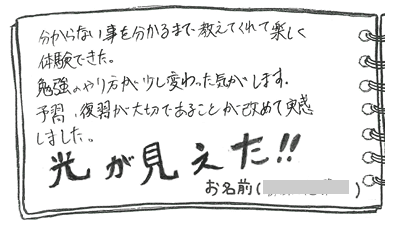 分からない事を分かるまで教えてくれて楽しく
体験できた。
勉強のやり方が少し変わった気がします.
予習、復習が大切であることが改めて実感
しました。
光が見えた!!
お名前( )